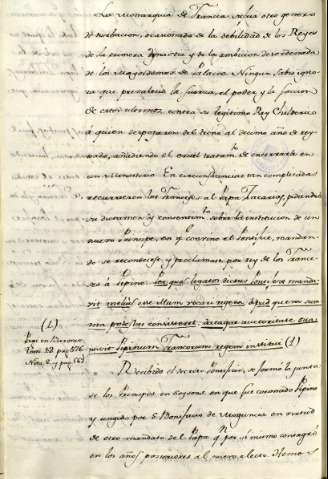 La Monarquia de Francia sufria otro genero
de turbacion, ocasionada de la debilidad de los Reyes
de la primera dynastia y de la ambicion desordenada
de los Magordomos de Palacio. Ningun Sabio igno-
ra que prevalecio la fuerza, el poder, y la faccion
de estos ultimos contra su legitimo Rey Childerico
a quien despojaron del trono al decimo año de rey-
nado, añadiendo el cruel tratam.to de encerrarle en
un Monasterio. En circunstancias tan complicadas
recurrieron los Franceses al Papa Zacarias, pidiendo
su dictamen y consentim.to sobre la institucion de un
nuevo Principe, en q.e convino el Pontifice, mandan-
do se reconociese, y proclamase por rey de los France-
ses à Pipino: per quos legatos dictus Pontifex mandavit
melius esse illum vocari regem, apud quem summa
potestas consisteret: dataque auctoritate sua
jussit Pipinum Francorum regem institui (1)
Recibido el Consejo, se formó la junta
de los Principes en Soysons, en que fue coronado Pipino
y ungido por S. Bonifacio de Maguncia en virtud
de otro mandato del Papa q.e por si mismo consagró
en los años posteriores al nuevo electo. Hemos
(1.)
Nota 2. y pag.